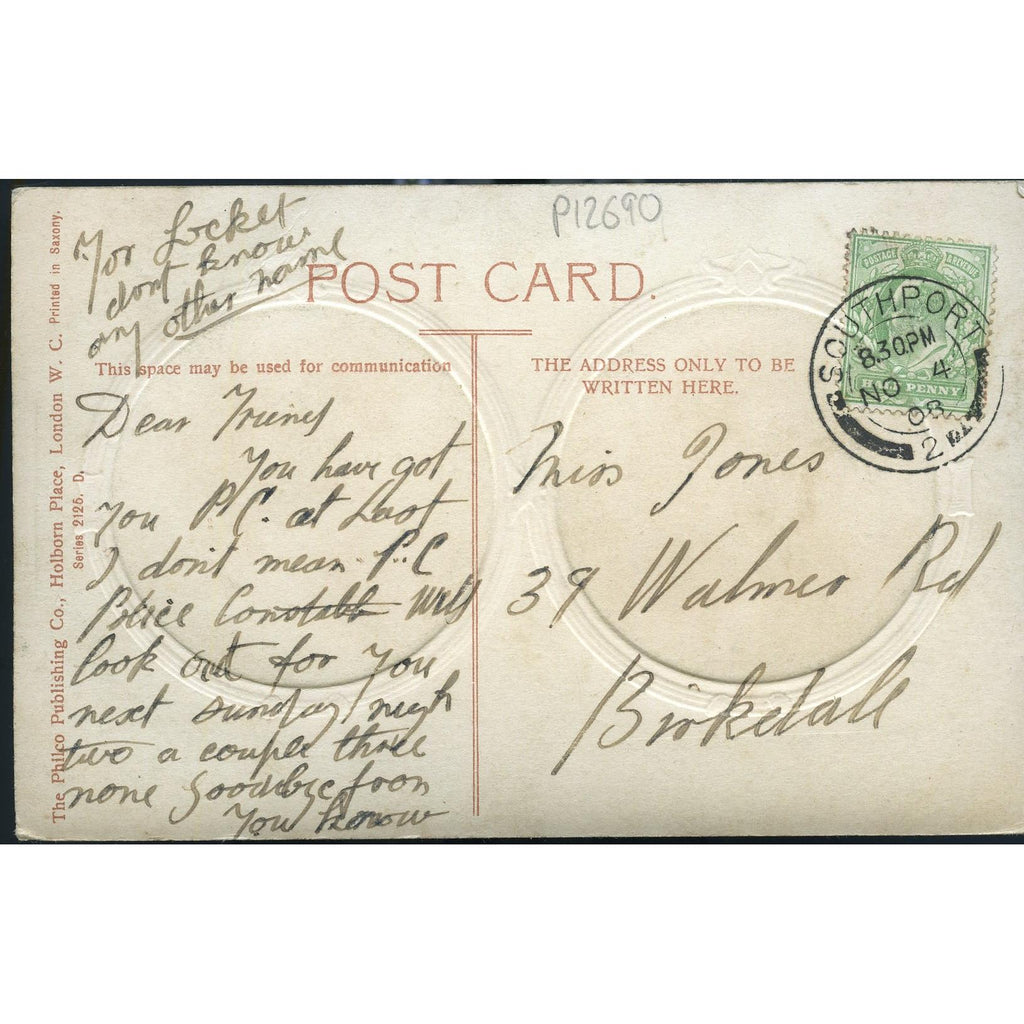 P12690
For Locket
dont know
any other name
POST CARD.
This space may be used for communication
Dear Friend
You have got
You P.C. at Last
I don't mean P.C
Police Constable Will
look out for You
next sunday nigh
two a couple three
none Goodbye
You know
THE ADDRESS ONLY TO BE
WRITTEN HERE.
Miss Jones
39 Walmer Rd
Birkdale
POSTAGE & REVENUE
HALF PENNY
SOUTHPORT
8.30PM
NO 4
08
2
The Philco Publishing Co., Holborn Place, London W. C. Printed in Saxony.
Series 2125. D.